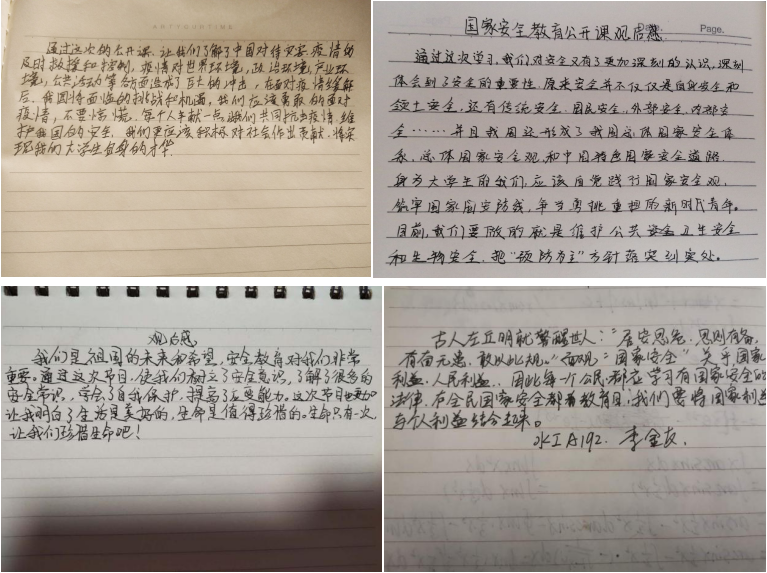 通过这次的公开课,让我们了解了中国对待灾害疫情的
及时救援和控制,疫情对世界环境,政治环境,产业环
境,公共活动等各方面造成了巨大的冲击,在面对疫情缓解
后,我国将面临的挑战和机遇,我们应该勇敢的面对
疫情,不要惊慌,每个人奉献一点,我们共同抗击疫情,维
护祖国的安全,我们更应该积极对社会作出贡献,将实
现我们大学生自身的才华.
国家安全教育公开课观后感
Page.
通过这次学习,我们对安全又有了更加深刻的认识,深刻
体会到了安全的重要性.原来安全并不仅仅是自身安全和
领土安全,还有传统安全.国民安全.外部安全.内部安
全……并且我国这形成了我国总体国家安全体
系,总体国家安全观和中国特色国家安全道路.
身为大学生的我们,应该自觉践行国家安全观,
筑牢国家国安防线,争当勇挑重担的新时代青年。
目前,我们要做的就是维护公共安全卫生安全
和生物安全.把“预防为主”方针落实到实处。
观后感
我们是祖国的未来和希望,安全教育对我们非常
重要。通过这次节目,使我们树立了安全意识,了解了很多的
安全常识,学会了自我保护,提高了应变能力。这次节目也更加
让我明白了生活是美好的,生命是值得珍惜的。生命只有一次,
让我们珍惜生命吧!
古人左丘明就警醒世人:“居安思危,思则有备,
有备无患,敢以此规。”  “国家安全”关乎国家
利益,人民利益.因此每一个公民都应学习有国家安全的
法律,在全民国家安全都有教育日,我们要将国家利益
与个人利益结合起来。
水工A192. 李金友.